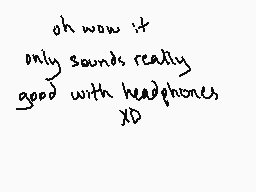 oh wow it
only sounds really
good with headphones
XD